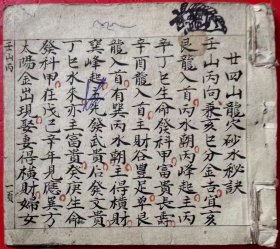 廿四山龍穴砂水秘訣
壬山丙向兼亥巳分金宜亥
艮龍入首丙水朝丙峰起主丙
辛丁巳生命發科甲富貴長壽
辛酉龍入首主財谷豐足單艮
龍入首有巽丙水朝主得橫財
巽峰起主先發武貴后發文貴
丁巳水來亦主富貴癸庚生命
發科甲在戊巳辛年見應異方
太陽金出現妻妾得橫財婦女
壬山丙
一頁